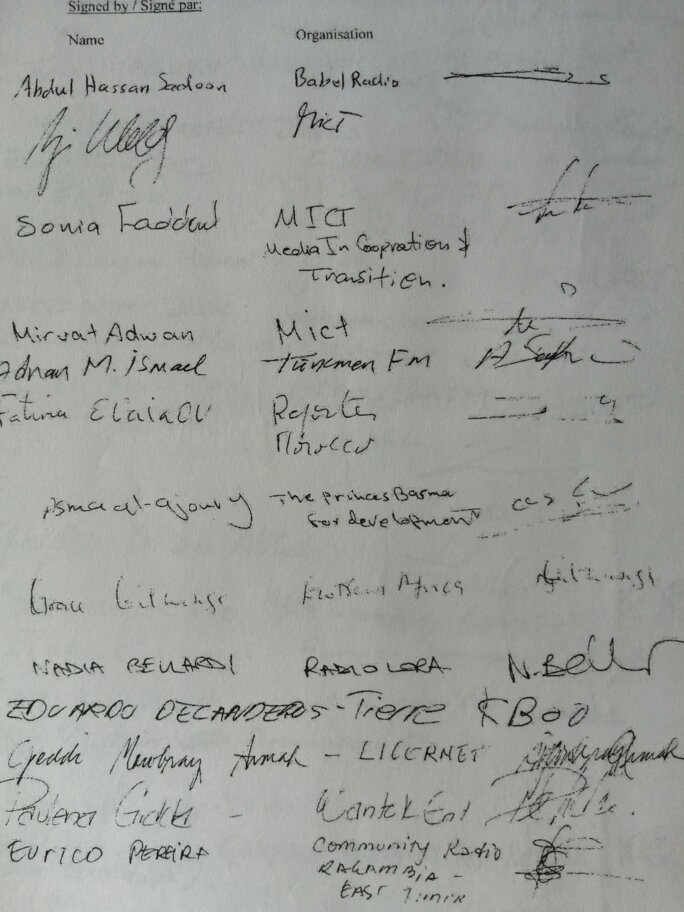 Signed by / Signé par:
Name Organisation
Abdul Hassan Sadoon Babel Radio
MICT
Sonia Faddoul MICT
Media In Coopration &
Transition.
Mirvat Adwan Mict
Adnan M. İsmael Türkmen FM
Fatima Reporter
Morocco
Asma al-ajoury The princes Basma
for development
Grace Githaiga EcoNews Africa
NADIA BELLARDI RADIO LORA N. Bell
EDUARDO DECANDEROS - Tierre KBOO
Geddi Mowbray Armah - LICERNET
- Wantok Ent
EURICO PEREIRA Community Radio
RAKAMBIA -
EAST TIMOR